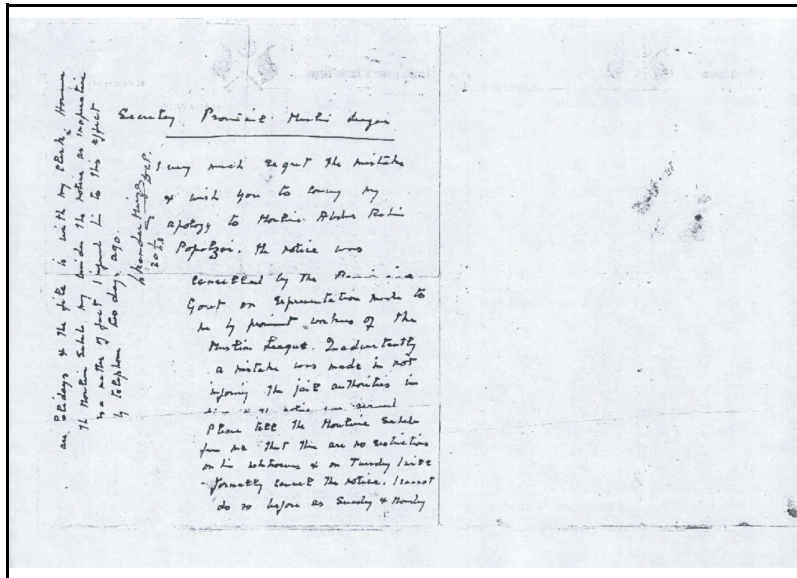 Secretary Provincial Muslim League
I very much regret the mistake
& wish you to convey my
apology to Moulana Abdur Rahim
Popalzai. The notice was
cancelled by the
Govt on representation made to
me by prominent workers of the
Muslim League. Inadvertently
a mistake was made in not
informing the jail authorities in
notice was served
Please tell the Moulana Saheb
from me that there are no restrictions
on his & on Tuesday I will
formally cancel the notice. I cannot
do so before as Sunday & Monday
are Holidays & the file is with my clerk. However
the Moulana Saheb may the notice as inoperative
as a matter of fact I him to this effect
by telephone two days ago.
Iskander Mirza
20